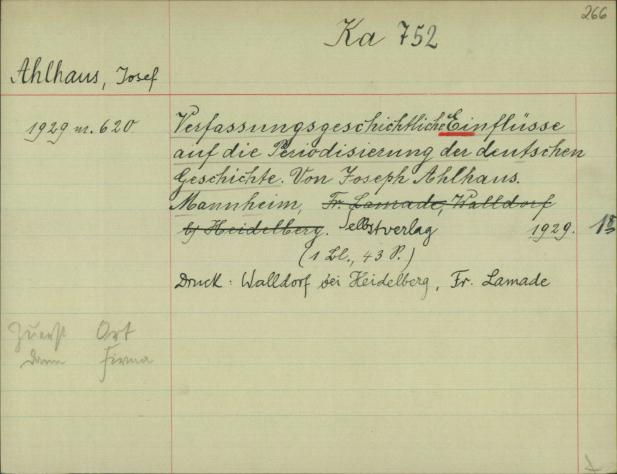 266
Ka 752
Ahlhaus, Josef
1929 nr. 620
Verfassungsgeschichtliche Einflüsse
auf die Periodisierung der deutschen
Geschichte. Von Joseph Ahlhaus.
Mannheim, Fr. Lamade, Walldorf
b/ Heidelberg. Selbstverlag 1929. 18
(1 Bl., 43 S.)
Druck: Walldorf bei Heidelberg, Fr. Lamade
Zuerst Ort
dann Firma